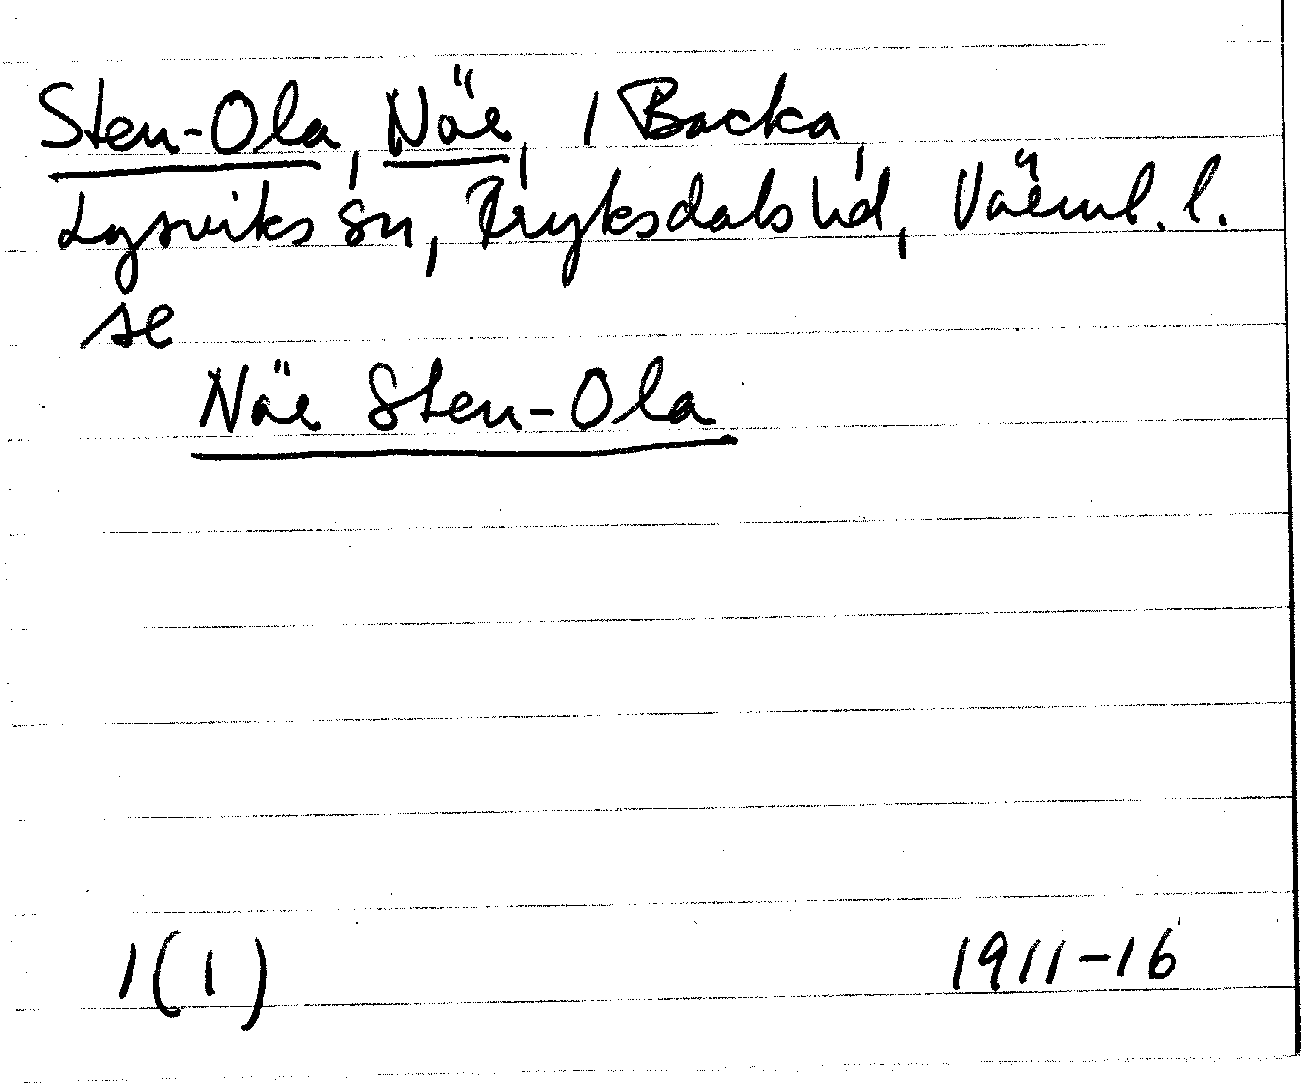 Sten-Ola, Näe, 1 Backa,
Lysviks sn, Fryksdals hd, Värml. l.
se
Näe Sten-Ola
1(1) 1911-16